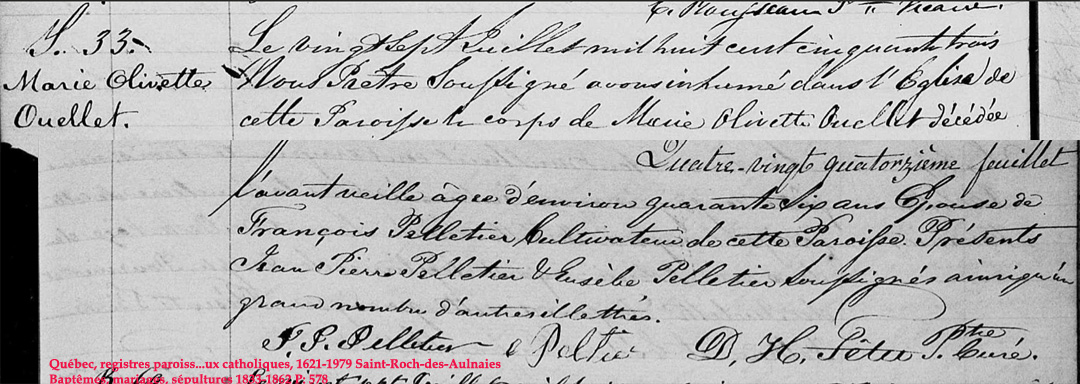 S. 33.
Marie Olivette
Ouellet.
Ptre Vicaire.
Le vingt sept Juillet mil huit cent cinquante trois
Nous Prêtre Soussigné avons inhumé dans l'Eglise de
cette Paroisse le corps de Marie Olivette Ouellet décédée
Quatre-vingt quatorzième feuillet
l'avant veille âgée d'environ quarante six ans Epouse de
François Pelletier Cultivateur de cette Paroisse. Présents
Jean Pierre Pelletier & Eusèbe Pelletier soussignés ainsi qu'un
grand nombre d'autres illettrés.
J. P. Pelletier e Peltier D. H. Têtu Ptre Curé.
Québec, registres paroiss...ux catholiques, 1621-1979 Saint-Roch-des-Aulnaies
Baptêmes, mariages, sépultures 1853-1862 P. 578